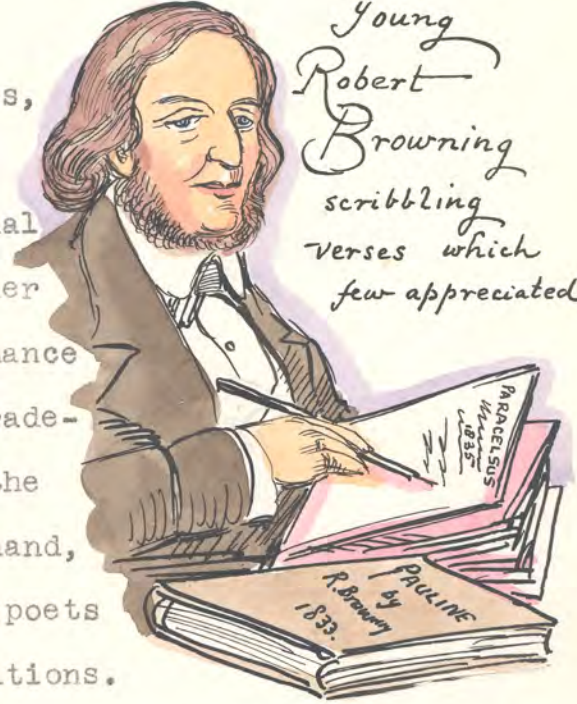 s,
al
er
ance
rade-
he
hand,
poets
itions.
Young
Robert
Browning
scribbling
verses which
few appreciated
PARACELSUS
1835
PAULINE
by
R. Browning
1833.